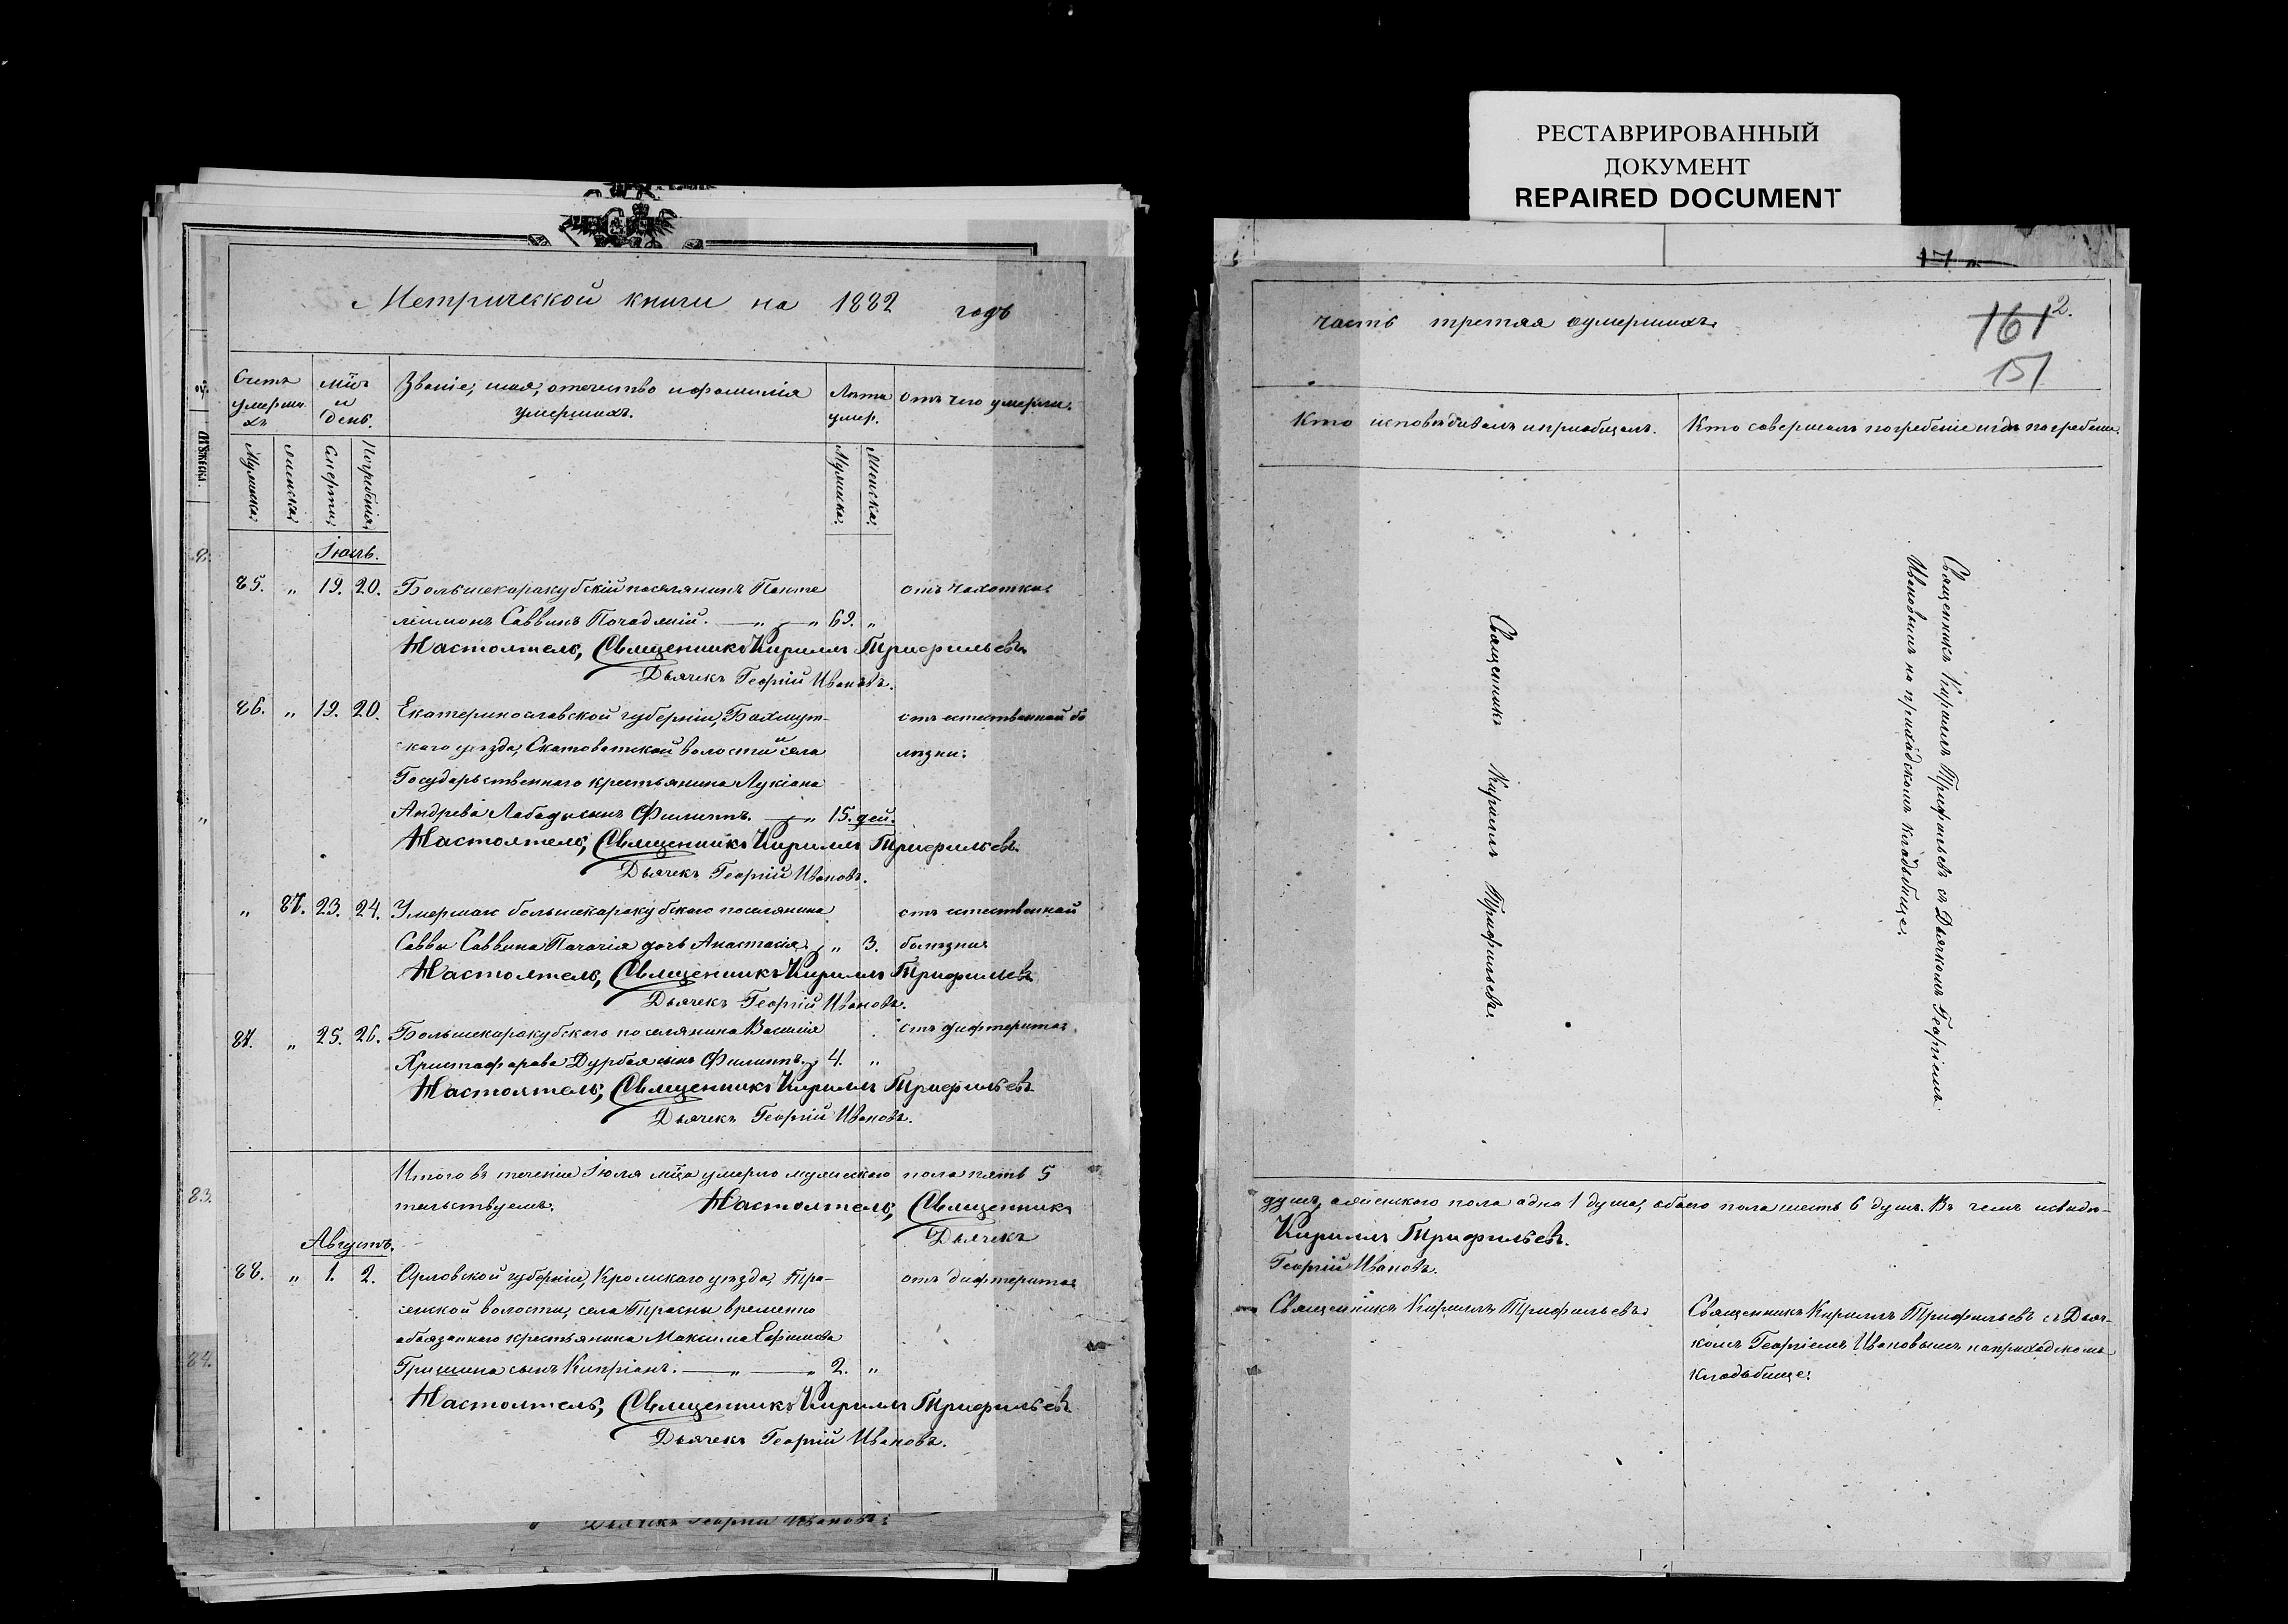 РЕСТАВРИРОВАННЫЙ
ДОКУМЕНТ
REPAIRED DOCUMENT
Метрической книги на 1882 годъ
Счетъ умершихъ
Мужска
Женска
Мѣс. и день.
Смерти
Погребенія
Званіе, имя, отечество и фамилія умершихъ.
Лѣта умер.
Мужска
Женска
Отъ чего умерли.
Іюль.
85. „ 19. 20. Большекаракубскій поселянинъ Панте отъ чахотки
леимонъ Саввинъ 69. „
Настоятель, Священникъ Кириллъ Трифильевъ
Дьячекъ Георгій Ивановъ.
86. „ 19. 20. Екатеринославской губерніи, Бахмут- отъ естественной бо
скаго уѣзда, волости и села лѣзни.
Государственнаго крестьянина Лукіана
Андреева сынъ Филиппъ. „ 15. дей.
Настоятель, Священникъ Кириллъ Трифильевъ
Дьячекъ Георгій Ивановъ.
„ 87. 23. 24. Умершаго большекаракубскаго поселянина отъ естественной
Саввы Саввина дочь Анастасія „ 3. болѣзни
Настоятель, Священникъ Кириллъ Трифильевъ
Дьячекъ Георгій Ивановъ.
87. „ 25. 26. Большекаракубскаго поселянина Василія отъ дифтерита
Христофорова сынъ Филиппъ 4. „
Настоятель, Священникъ Кириллъ Трифильевъ
Дьячекъ Георгій Ивановъ.
Итого въ теченіе Іюля мѣсца умерло мужескаго пола пять 5
тельствуемъ. Настоятель, Священникъ
Дьячекъ
Августъ.
88. „ 1. 2. Орловской губерніи, Кромскаго уѣзда, отъ дифтерита
волости, села временно
обязаннаго крестьянина Максима Ефимова
Гришина сынъ Кипріанъ. „ „ 2. „
Настоятель, Священникъ Кириллъ Трифильевъ
Дьячекъ Георгій Ивановъ.
Дьячекъ Георгій Ивановъ
часть третяя о умершихъ.
161 2.
151
Кто исповѣдывалъ и пріобщалъ.
Кто совершалъ погребеніе и гдѣ погребены.
Священникъ Кириллъ Трифильевъ.
Священникъ Кириллъ Трифильевъ съ Дьячкомъ Георгіемъ
Ивановымъ на приходскомъ кладьбище.
душъ, женскаго пола одна 1 душа, обоего пола шесть 6 душъ. Въ чемъ и свидѣ-
Кириллъ Трифильевъ.
Георгій Ивановъ.
Священникъ Кириллъ Трифильевъ.
Священникъ Кириллъ Трифильевъ съ Дьяч-
комъ Георгіемъ Ивановымъ на приходскомъ
кладьбище.
83.
84.